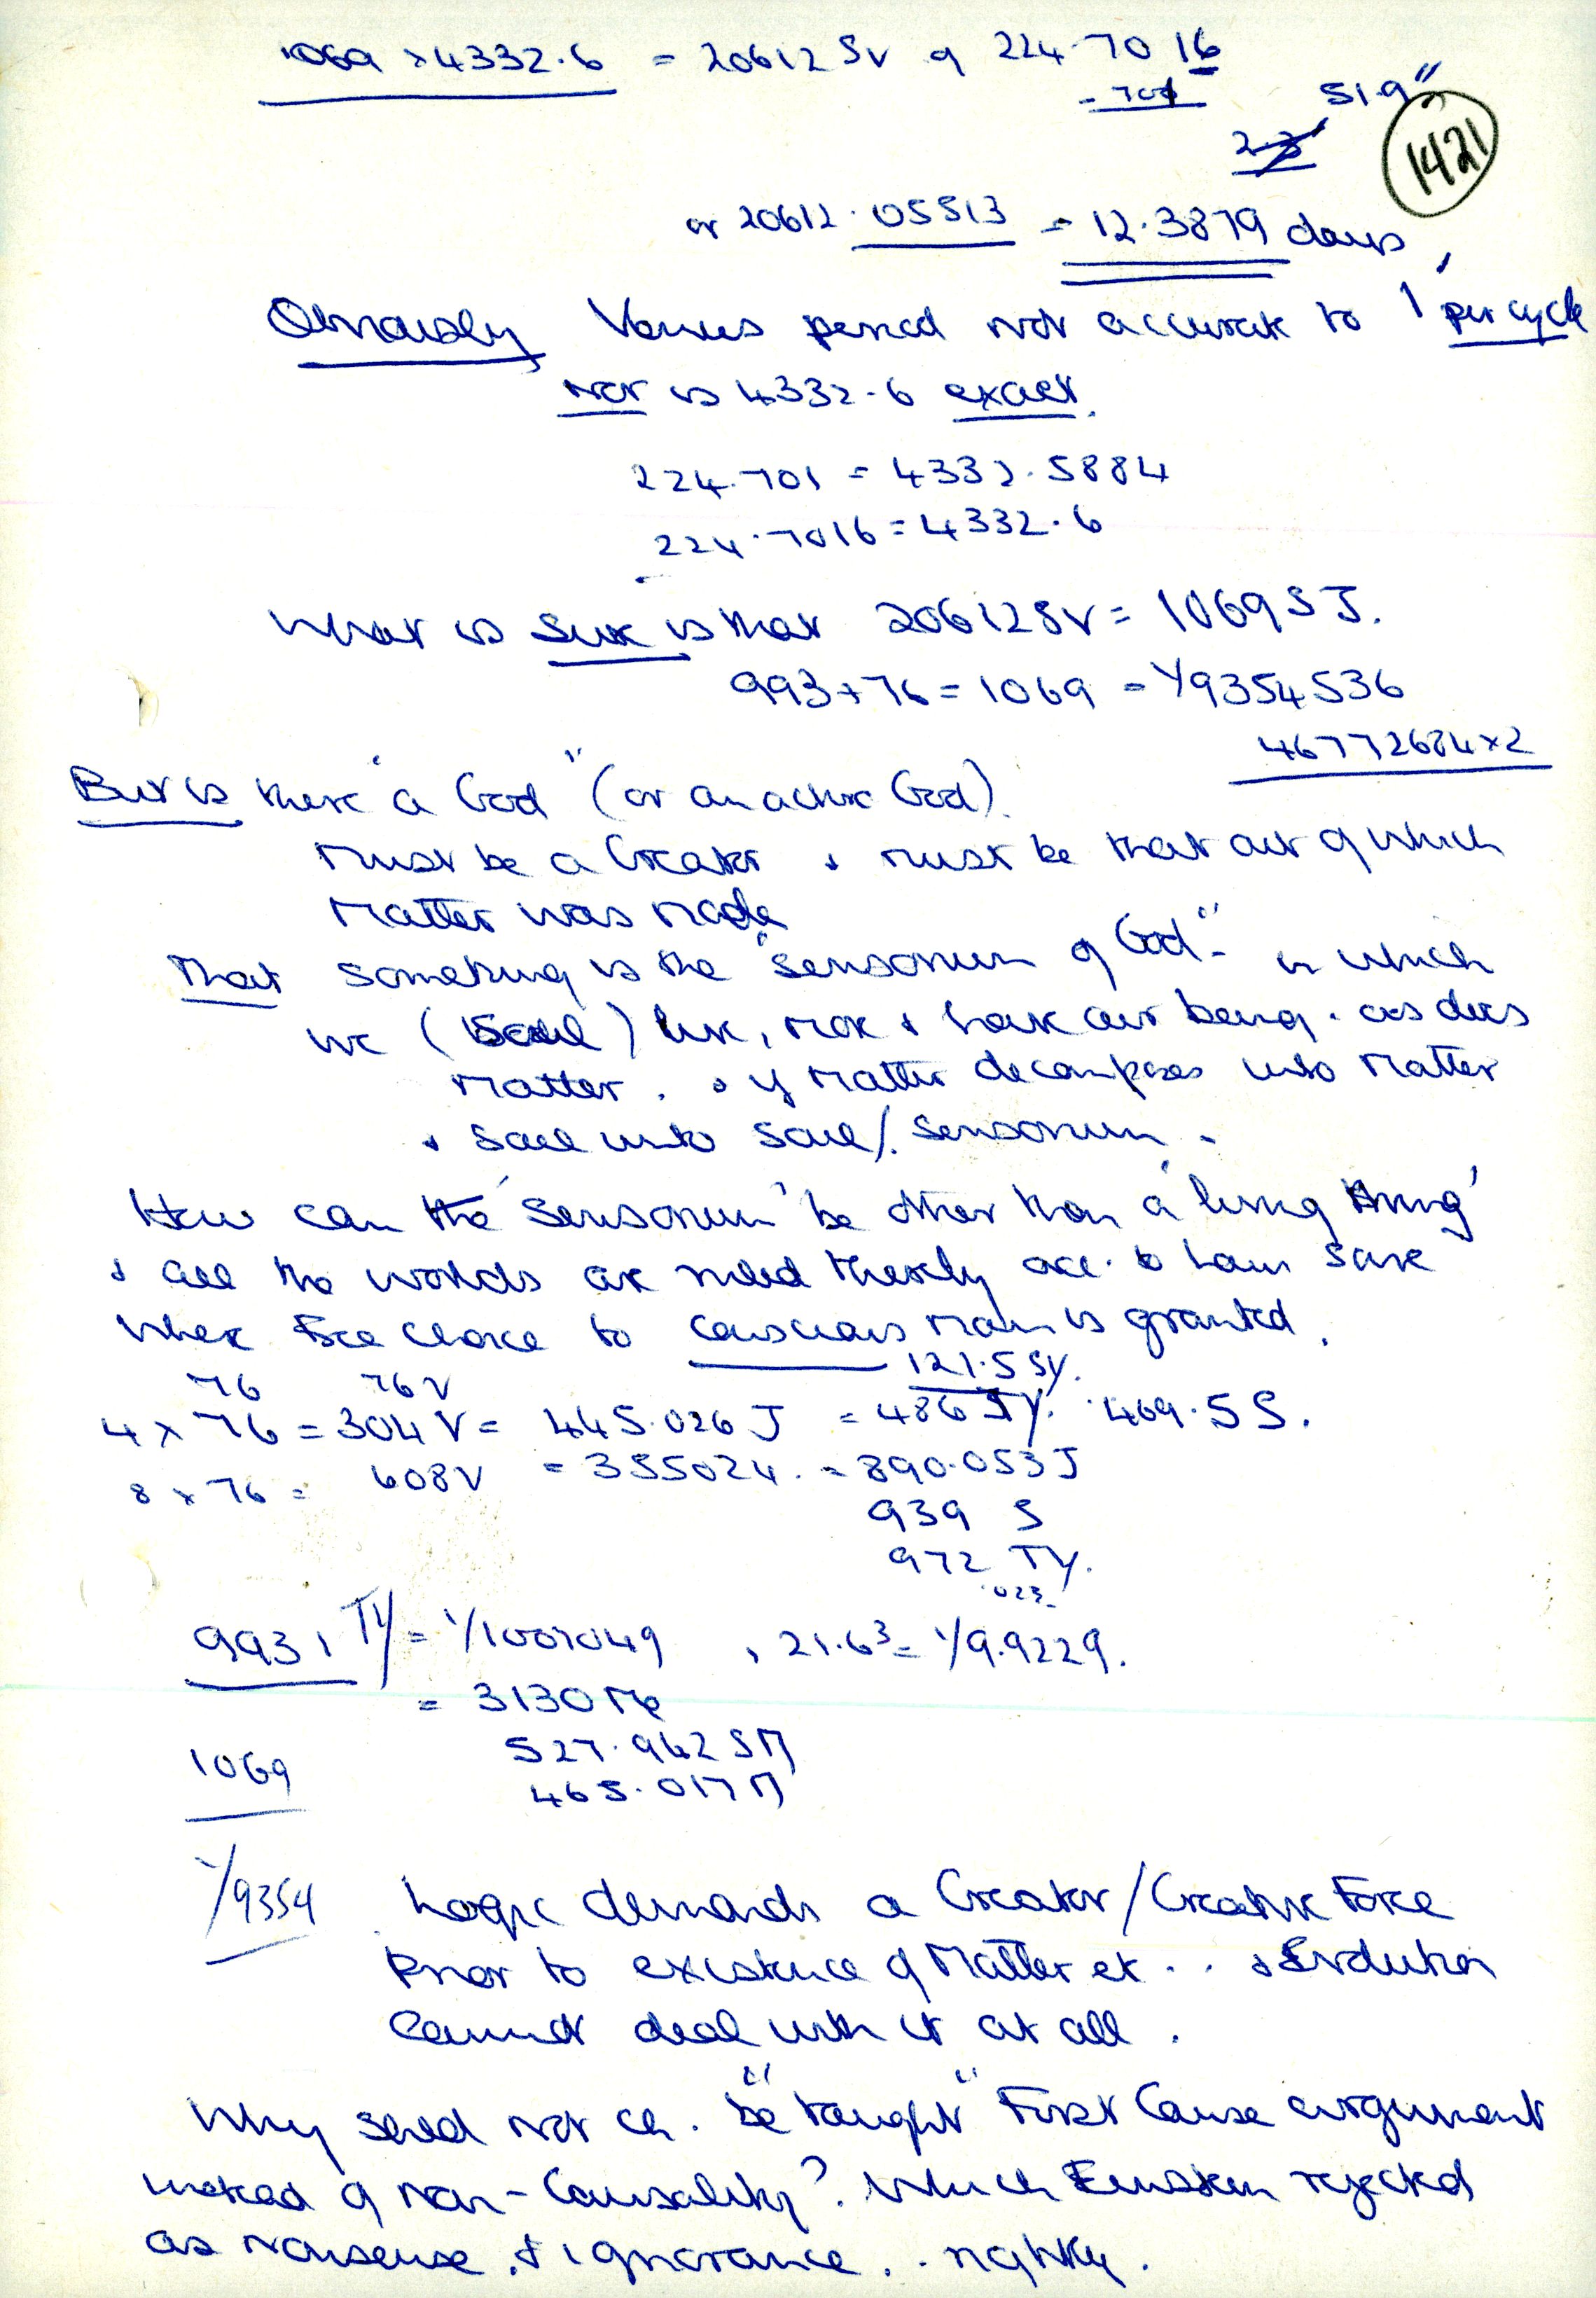 1069 × 4332.6 = 20612 SV of 224.7016
- 701
51.9"
1421
or 20612.05513 = 12.3879 days
Obviously Venus period not accurate to 1' per cycle
Nor is 4332.6 exact.
224.701 = 4332.5884
224.7016 = 4332.6
What is sure is that 20612 SV = 1069 SJ.
993 + 76 = 1069 = Y9354536
46772684 × 2
But is there "a God" (or an active God)
Must be a Creator & must be that out of which
Matter was made
That something is the "sensorium of God" - in which
we (Soul) live, move & have our being. as does
Matter. & if Matter decomposes into Matter
& Soul into Soul/. Sensorium.
How can the 'Sensorium' be other than a 'living thing'
& all the worlds are ruled thereby acc. to Law save
where free choice to conscious man is granted.
76 76V 121.5 SY.
4 × 76 = 304 V = 445.026 J = 486 JY. 469.5 S.
8 × 76 = 608V = 355024. = 890.053J
939 S
972 TY.
.023
993, TY = Y1001049 , 21.6³ = Y9.9229.
= 3130 Me
527.962 SM
1069
465.017 M
Y9354 Logic demands a Creator/Creative Force
Prior to existence of Matter et . . & Evolution
cannot deal with it at all.
Why shld not ch. "be taught" First Cause argument
instead of non-Causality? Which Einstein rejected
as nonsense, & ignorance. . rightly.